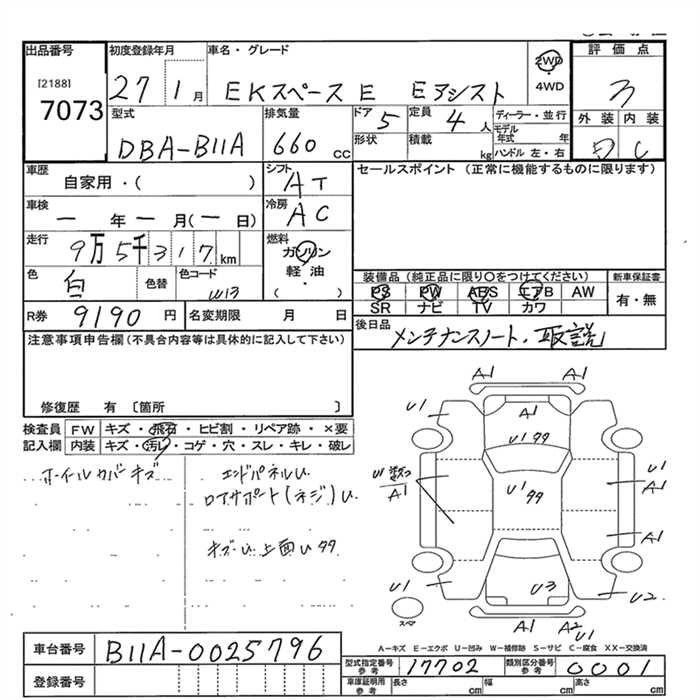 出品番号 初度登録年月 車名・グレード 2WD 評価点
[2188] 7073 27 1月 EKスペースE Eアシスト 4WD 3
型式 排気量 ドア 5 定員 4人 ディーラー・並行 外装 内装
DBA-B11A 660cc 形状 積載 kg モデル年式 年 ハンドル 左・右 C
車歴 自家用・( ) シフト AT セールスポイント (正常に機能するものに限ります)
車検 ー年ー月(ー日) 冷房 AC
走行 9万5千317km 燃料 ガソリン 軽油 ( )
色 白 色替 色コード W13 装備品 (純正品に限り〇をつけてください) 新車保証書
PS PW ABS エアB AW 有・無
R券 9190円 名変期限 月 日 SR ナビ TV カワ
注意事項申告欄(不具合内容等は具体的に記入して下さい) 後日品 メンテナンスノート・取説
修復歴 有 〔箇所 〕
検査員 FW キズ・飛石・ヒビ割・リペア跡・×要
記入欄 内装 キズ・汚レ・コゲ・穴・スレ・キレ・破レ
ホイールカバーキズ エンドパネルU
ロアサポート(ネジ)U
キズU 上面Uタタ
A1
U1 A1 A1
U1タタ
U1 A1 U1タタ A1
A1
U1 U3 U2
スペア A1 A2 U1
A-キズ E-エクボ U-凹み W-補修跡 S-サビ C-腐食 XX-交換済
車台番号 B11A-0025796 型式指定番号 参考 17702 類別区分番号 参考 0001
登録番号 車庫証明用 参考 長さ cm 幅 cm 高さ cm